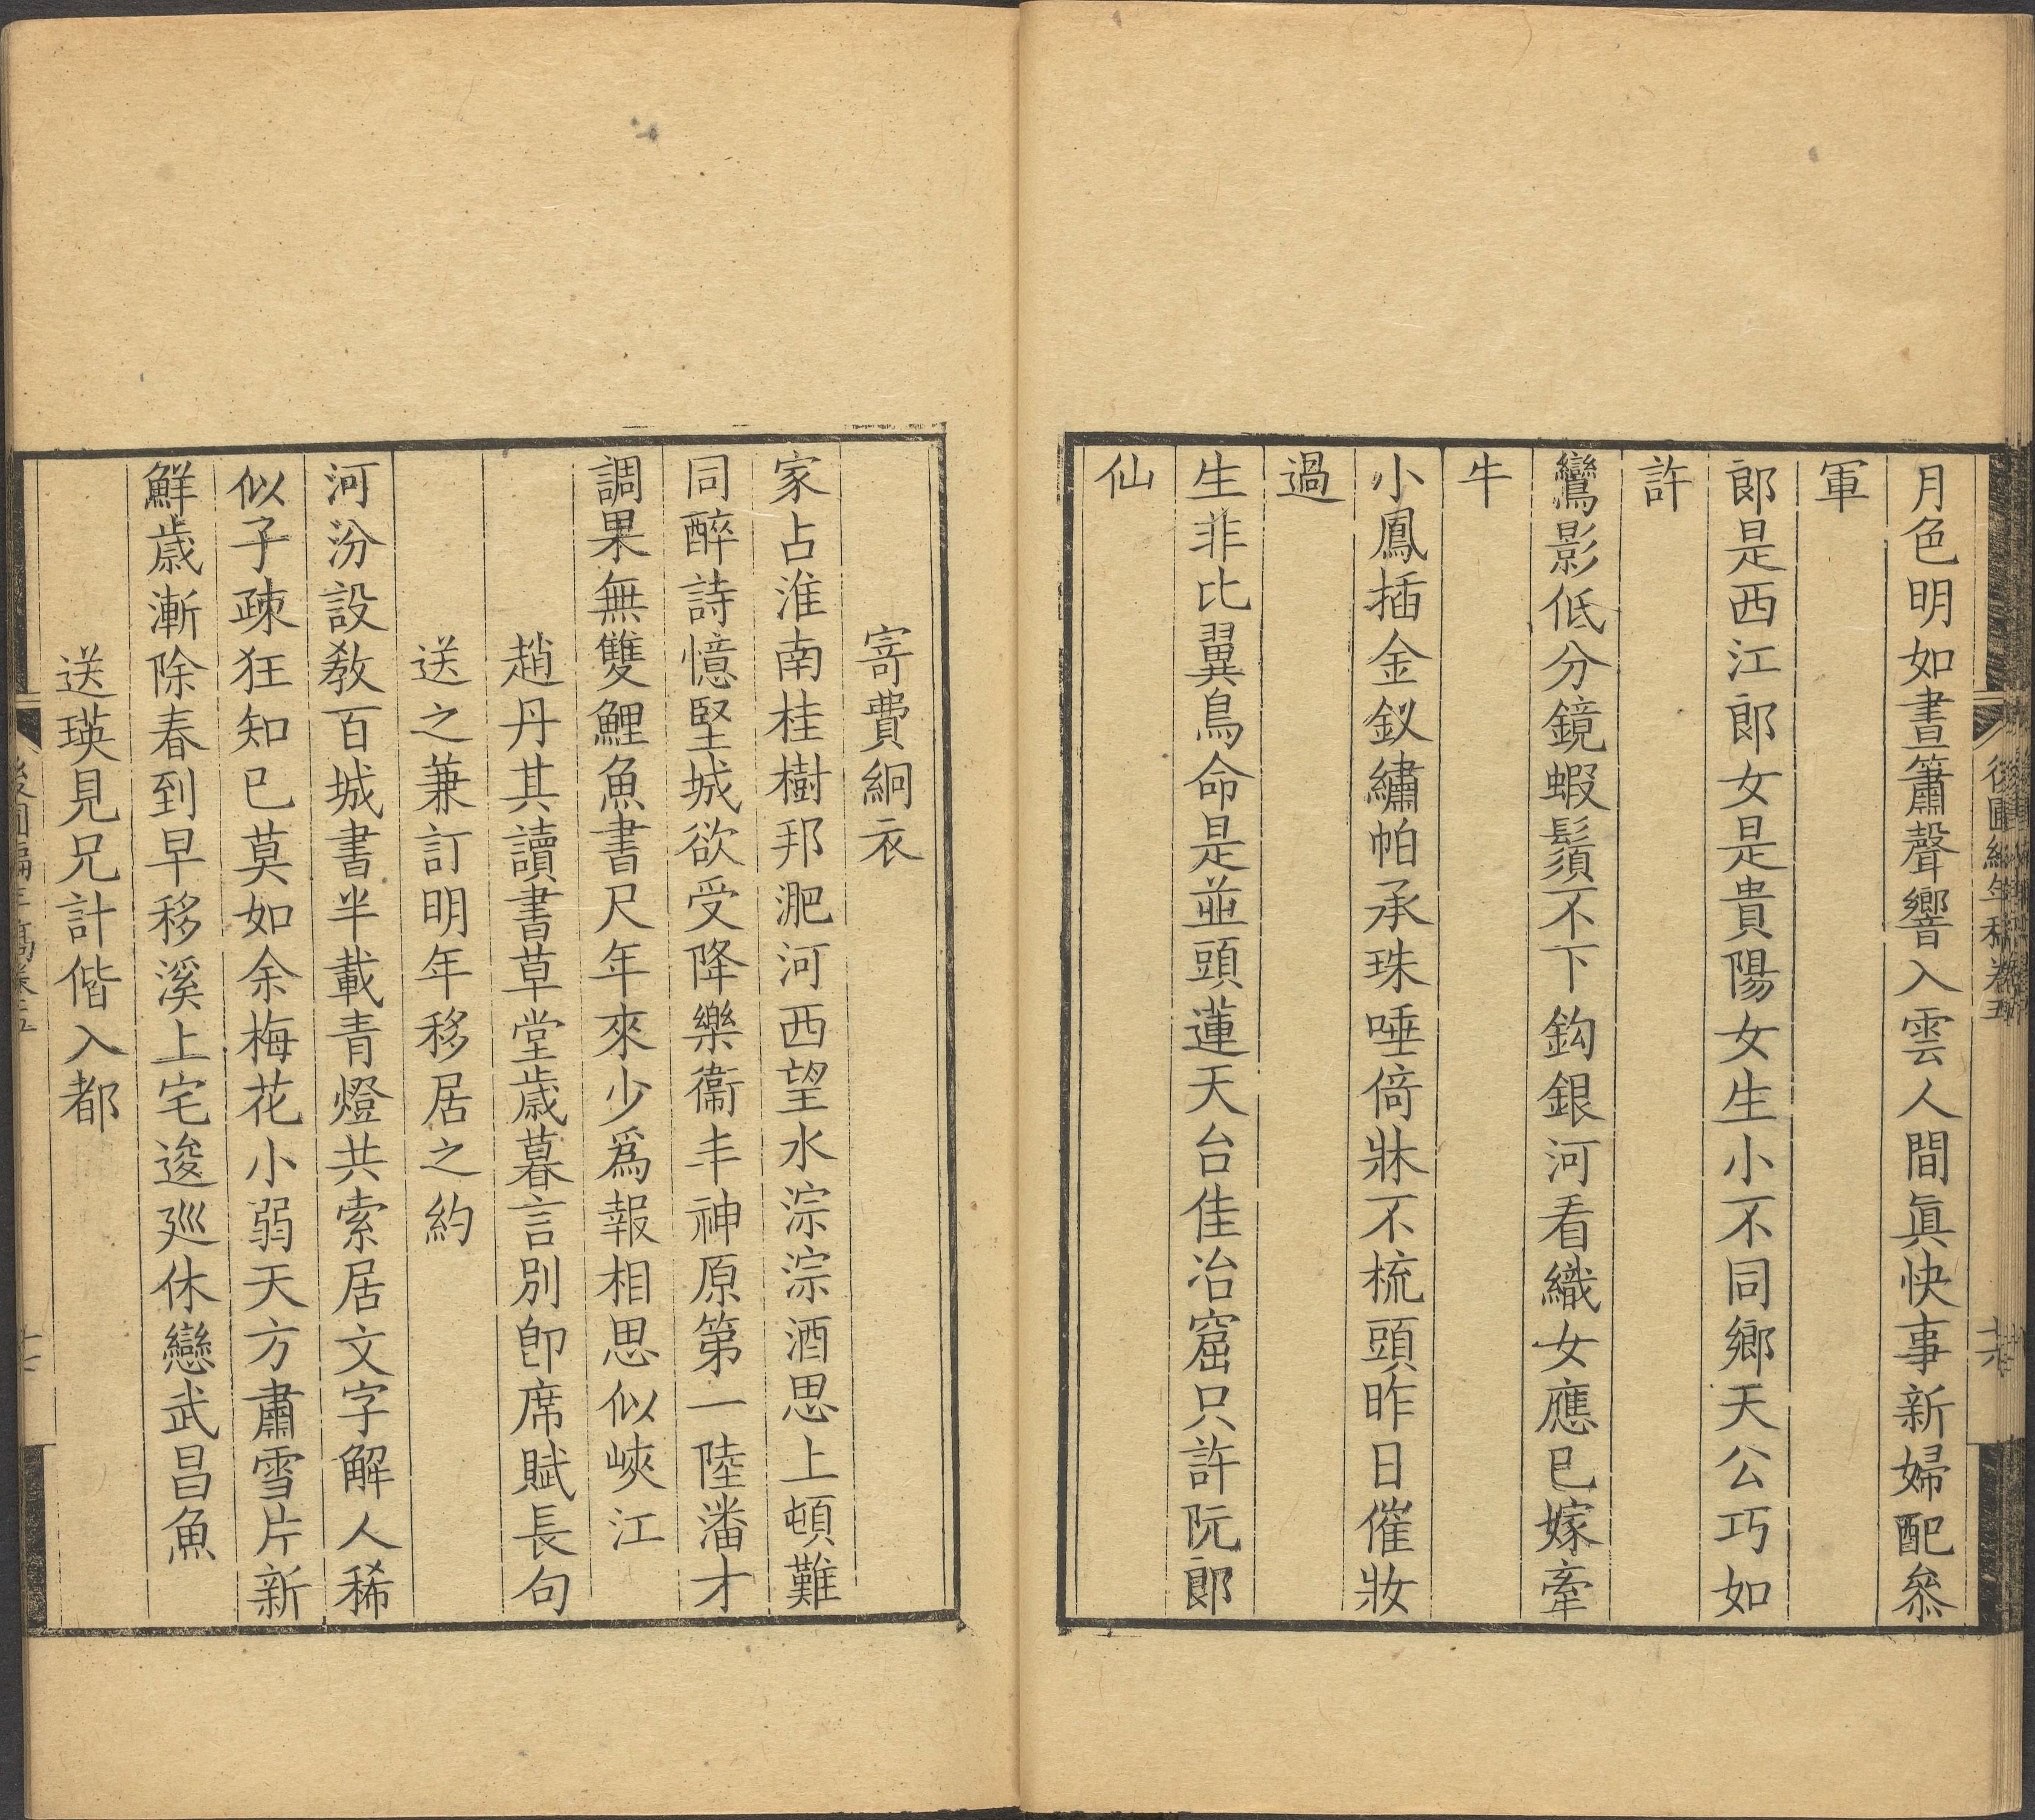 月色明如晝簫聲響入雲人間眞快事新婦配叅
軍
郎是西江郎女是貴陽女生小不同鄉天公巧如
許
鸞影低分鏡蝦鬚不下鈎銀河看織女應已嫁牽
牛
小鳳插金釵繡帕承珠唾倚牀不梳頭昨日催妝
過
生非比翼鳥命是並頭蓮天台佳冶窟只許阮郎
仙
寄費絅衣
家占淮南桂樹邦淝河西望水淙淙酒思上頓難
同醉詩憶堅城欲受降樂衞丰神原第一陸潘才
調果無雙鯉魚書尺年來少爲報相思似峽江
趙丹其讀書草堂歲暮言別卽席賦長句
送之兼訂明年移居之約
河汾設敎百城書半載靑燈共索居文字解人稀
似子疎狂知已莫如余梅花小弱天方肅雪片新
鮮歲漸除春到早移溪上宅逡廵休戀武昌魚
送瑛見兄計偕入都